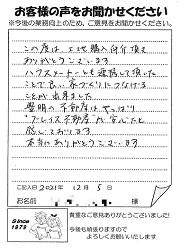 お客様の声をお聞かせください
※今後の業務向上のため、ご意見をお聞かせください。
この度は、土地購入仲介頂き
ありがとうございます
ハウスメーカーも連携して頂いた
ことで、良い家づくりにつなげる
ことが出来ました
豊明の不動産はやっぱり
"アーレイス不動産"が安心だと
感じております
本当にありがとうございます
ご記入日 2021年 12月 5日
お名前 様
Since
1973
貴重なご意見ありがとうございました!
今後も頑張りますので
よろしくお願いいたします